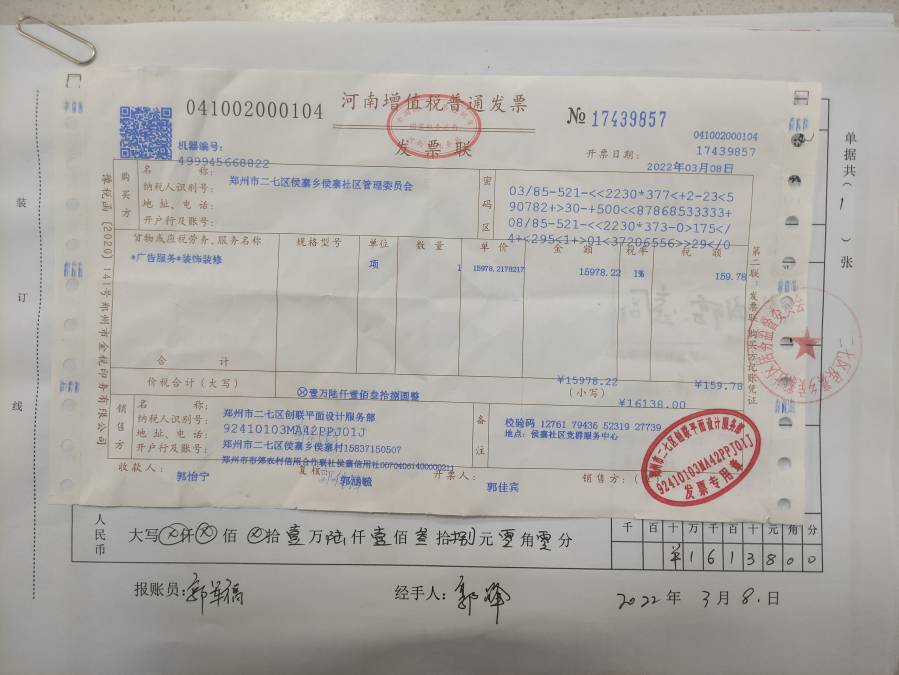 041002000104
河南增值税普通发票
发票联
№ 17439857
041002000104
17439857
机器编号:
499945668822
开票日期: 2022年03月08日
购买方
名称: 郑州市二七区侯寨乡侯寨社区管理委员会
纳税人识别号:
地址、电话:
开户行及账号:
密码区
03/85-521-<<2230*377<+2-23<5
590782+>30-+500<<87868533333+
08/85-521-<<2230*373-0>175</
4+<295<1+>01<37206556>>29</04
货物或应税劳务、服务名称 规格型号 单位 数量 单价 金额 税率 税额
*广告服务*装饰装修 项 1 15978.2178217 15978.22 1% 159.78
合计 ¥15978.22 ¥159.78
价税合计(大写) ⊗壹万陆仟壹佰叁拾捌圆整 (小写) ¥16138.00
销售方
名称: 郑州市二七区创联平面设计服务部
纳税人识别号: 92410103MA42PPJ01J
地址、电话: 郑州市二七区侯寨乡侯寨村15837150507
开户行及账号: 郑州市市郊农村信用合作联社侯寨信用社00704061400000211
备注
校验码 12761 79436 52319 27739
地点: 侯寨社区党群服务中心
收款人: 郭怡宁
复核: 郭涵毓
开票人: 郭佳宾
销售方:
郑州市二七区创联平面设计服务部
92410103MA42PPJ01J
发票专用章
豫税函〔2020〕141号郑州市金税印务有限公司
第二联:发票联 购买方记账凭证
单据共(1)张
装订线
人民币
大写⊗仟⊗佰⊗拾壹万陆仟壹佰叁拾捌元零角零分
千百十万千百十元角分
¥1613800
报账员: 郭军福
经手人: 郭峰
2022年3月8日